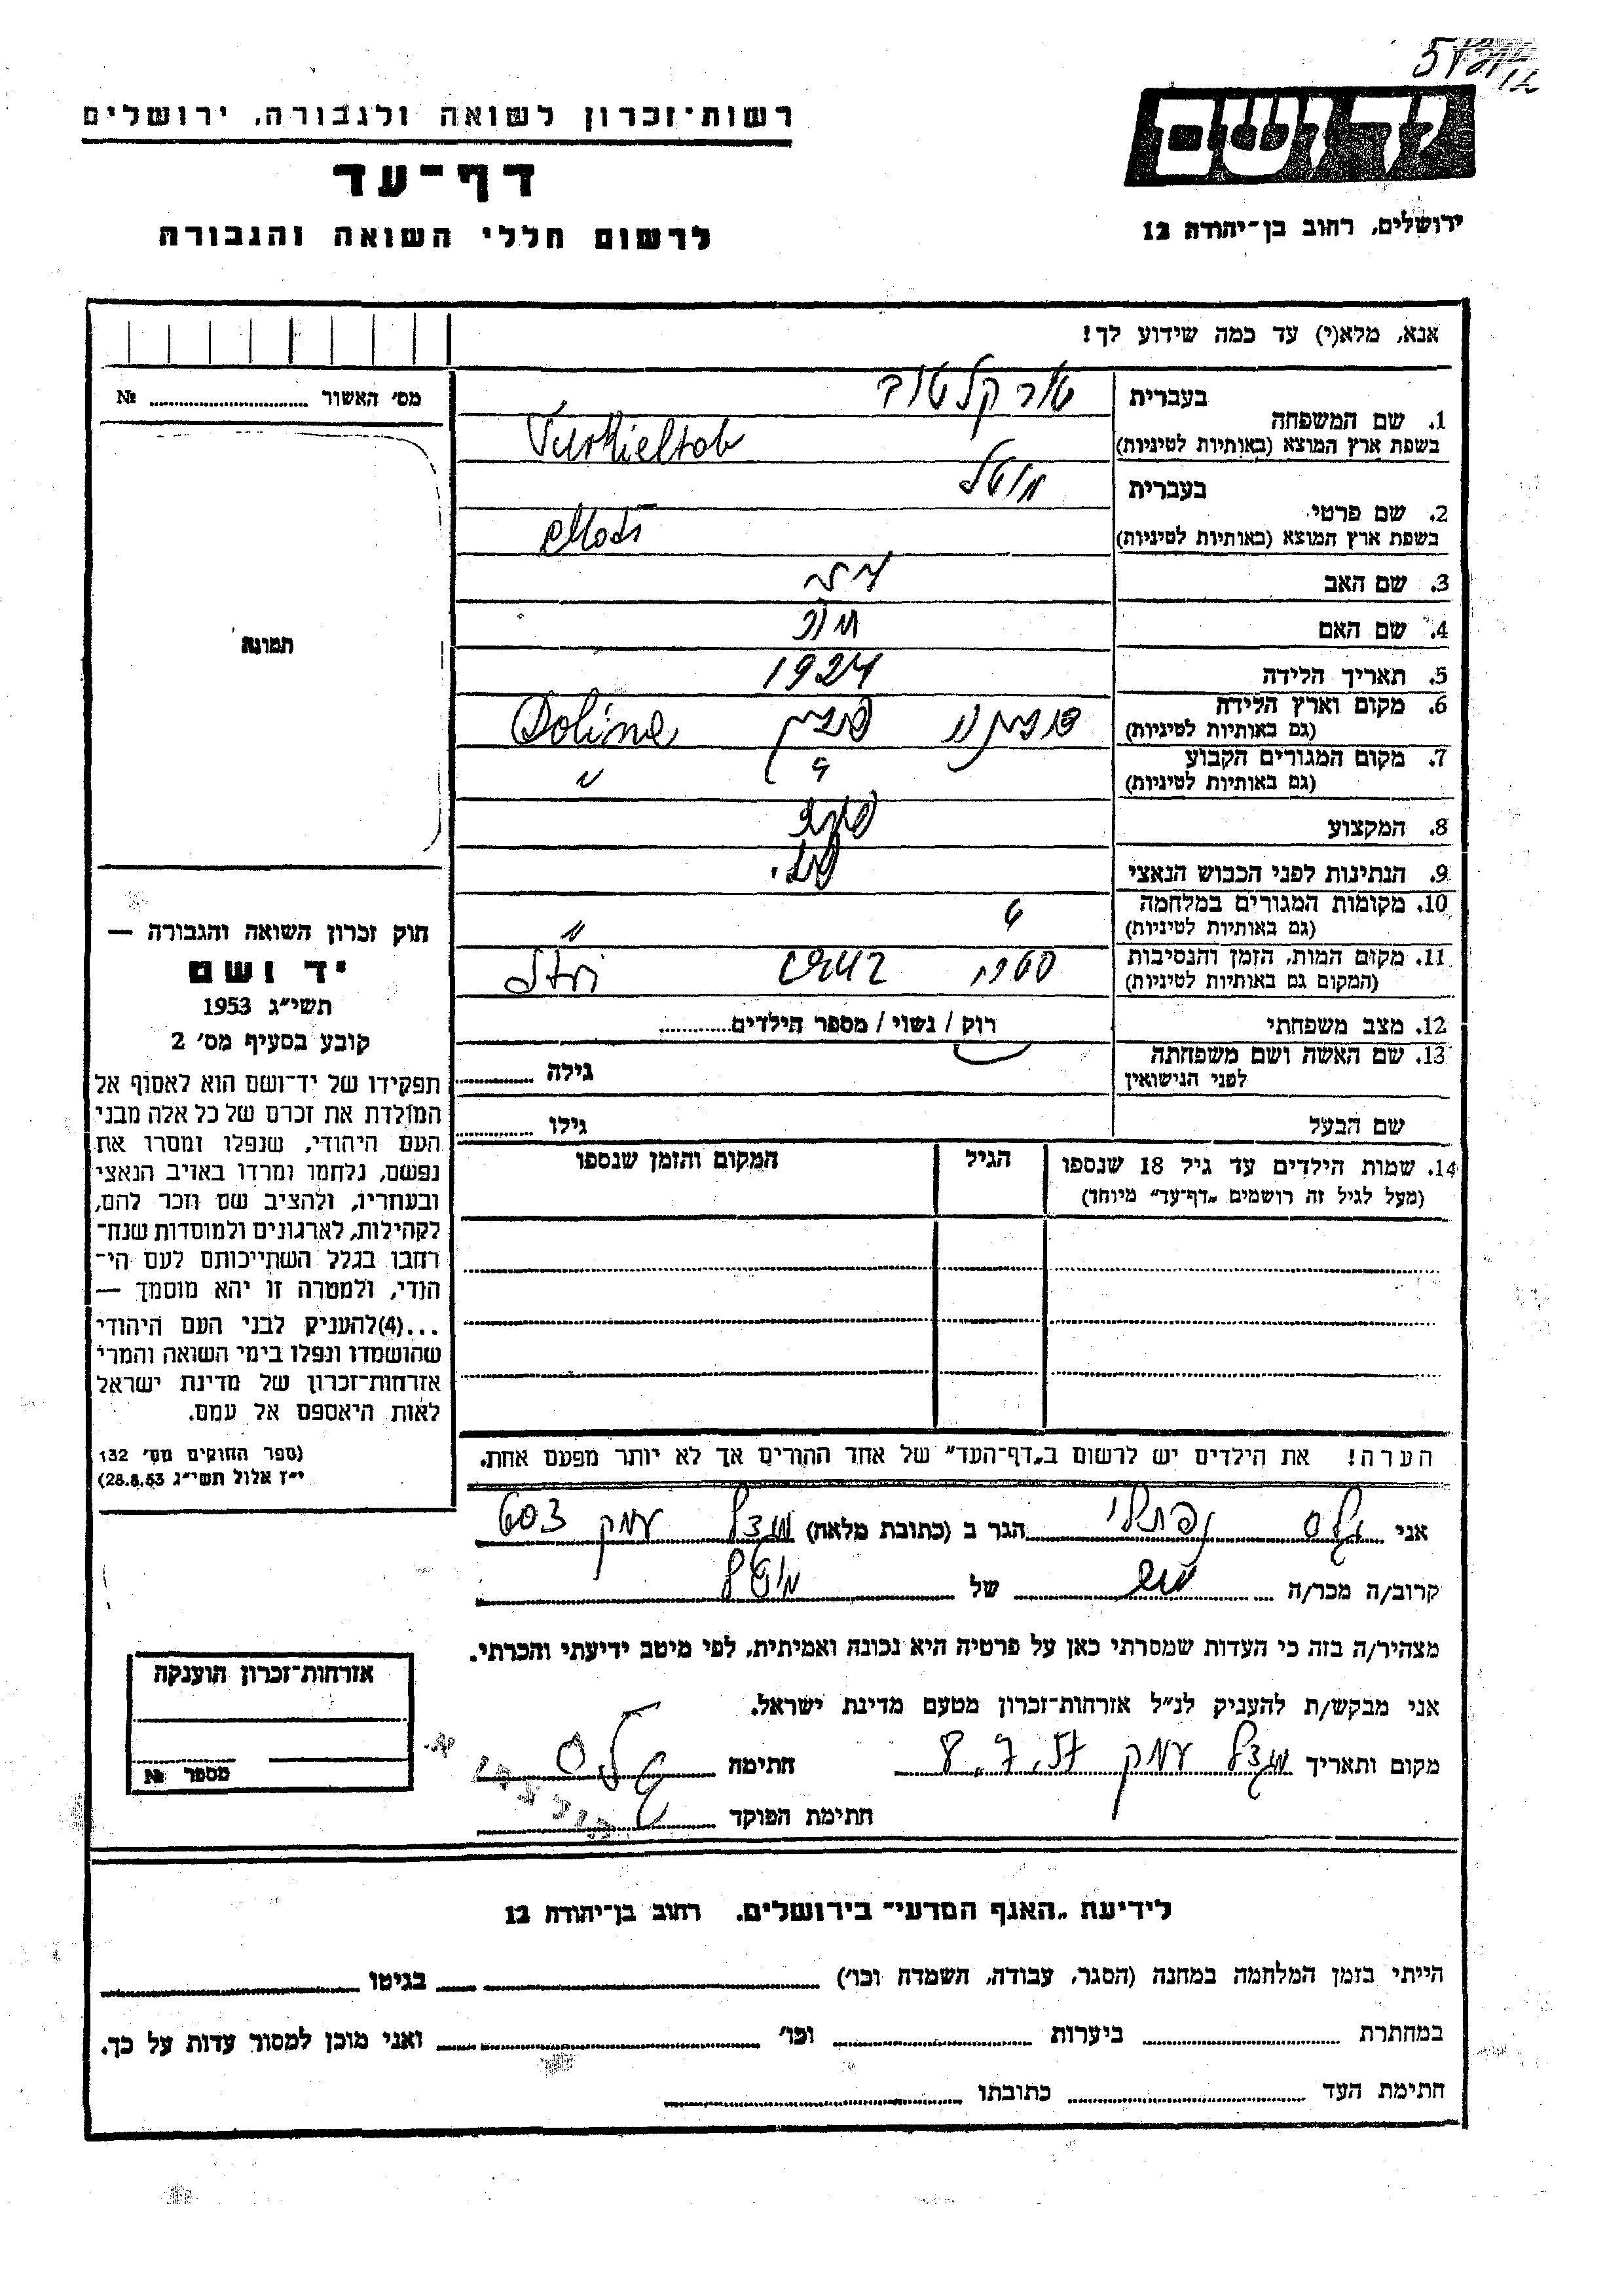 יד ושם
ירושלים, רחוב בן־יהודה 12
רשות־זכרון לשואה ולגבורה, ירושלים
דף־עד
לרשום חללי השואה והגבורה
אנא, מלא(י) עד כמה שידוע לך!
מס׳ האשור № 
תמונה
חוק זכרון השואה והגבורה —
יד ושם
תשי״ג 1953
קובע בסעיף מס׳ 2
תפקידו של יד־ושם הוא לאסוף אל
המולדת את זכרם של כל אלה מבני
העם היהודי, שנפלו ומסרו את
נפשם, נלחמו ומרדו באויב הנאצי
ובעוזריו, ולהציב שם וזכר להם,
לקהילות, לארגונים ולמוסדות שנח־
רחבו בגלל השתייכותם לעם הי־
הודי, ולמטרה זו יהא מוסמך —
...(4)להעניק לבני העם היהודי
שהושמדו ונפלו בימי השואה והמרי
אזרחות־זכרון של מדינת ישראל
לאות היאספם אל עמם.
(ספר החוקים מס׳ 132
י״ז אלול תשי״ג 28.8.53)
בעברית טורקלטוב
1. שם המשפחה
בשפת ארץ המוצא (באותיות לטיניות) Turkieltob
בעברית מוטל
2. שם פרטי
בשפת ארץ המוצא (באותיות לטיניות) Motl
3. שם האב
4. שם האם
5. תאריך הלידה 1924
6. מקום וארץ הלידה Dolina
(גם באותיות לטיניות)
7. מקום המגורים הקבוע "
(גם באותיות לטיניות)
8. המקצוע
9. הנתינות לפני הכבוש הנאצי
10. מקומות המגורים במלחמה "
(גם באותיות לטיניות)
11. מקום המות, הזמן והנסיבות Stri
(המקום גם באותיות לטיניות)
12. מצב משפחתי רוק / נשוי / מספר הילדים
13. שם האשה ושם משפחתה גילה
לפני הנישואין
שם הבעל גילו
14. שמות הילדים עד גיל 18 שנספו הגיל המקום והזמן שנספו
(מעל לגיל זה רושמים „דף־עד״ מיוחד)
הערה! את הילדים יש לרשום ב„דף־העד״ של אחד ההורים אך לא יותר מפעם אחת.
אני נפתלי הגר ב (כתובת מלאה) מגדל עמק 603
קרוב/ה מכר/ה של מוטל
מצהיר/ה בזה כי העדות שמסרתי כאן על פרטיה היא נכונה ואמיתית, לפי מיטב ידיעתי והכרתי.
אני מבקש/ת להעניק לנ״ל אזרחות־זכרון מטעם מדינת ישראל.
מקום ותאריך מגדל עמק 8.7.57 חתימה
חתימת הפוקד
אזרחות־זכרון הוענקה
מספר №
לידיעת „האגף המדעי״ בירושלים, רחוב בן־יהודה 12
הייתי בזמן המלחמה במחנה (הסגר, עבודה, השמדה וכו׳) בגיטו
במחתרת ביערות וכו׳ ואני מוכן למסור עדות על כך.
חתימת העד כתובתו